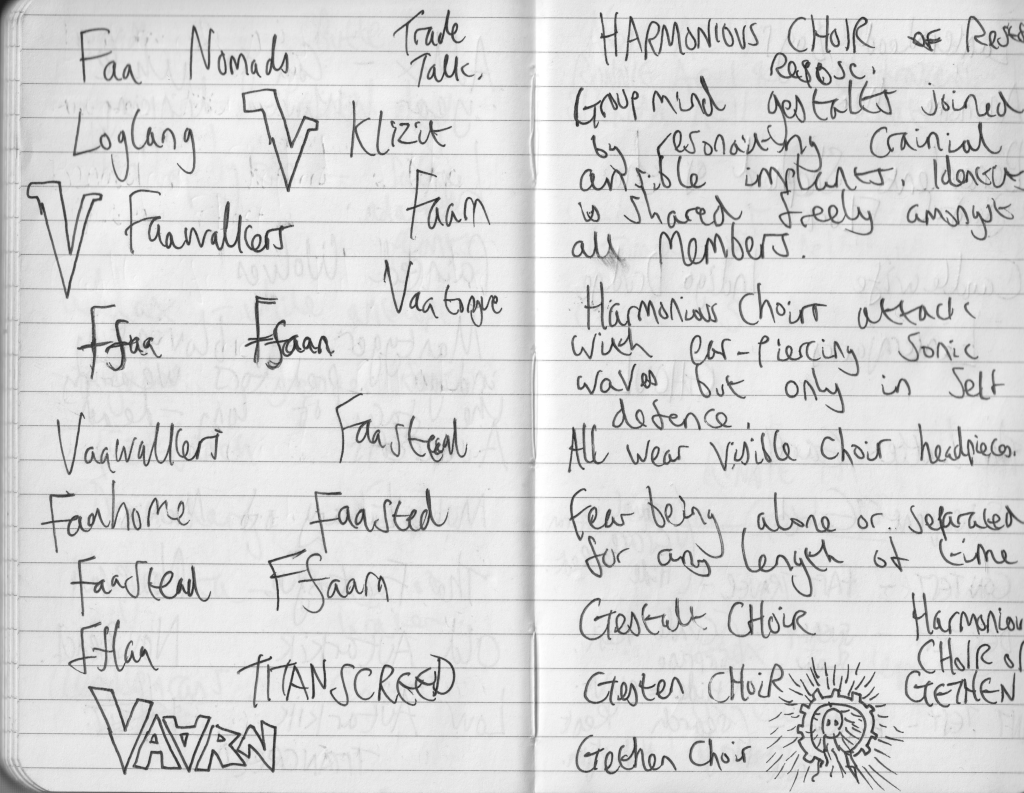 Faa Nomads Trade
Talk.
Loglang V Klizit
V Faawalkers Faarn
Vaatongue
Ffaa Ffaan
Vaawalkers Faastead
Faahome Faasted
Faastead Ffaarn
Ffaa
TITANSCREED
VAARN
HARMONIOUS CHOIR OF
REPOSE.
Group mind gestalts joined
by resonating crainial
ansible implants. Identity
is shared freely amongst
all members.
Harmonious Choirs attack
with ear-piercing sonic
waves but only in self
defence.
All wear visible choir headpieces.
Fear being alone or separated
for any length of time
Gestalt CHOIR Harmoniou
CHOIR OF
Gesten CHOIR GETHEN
Gethen Choir